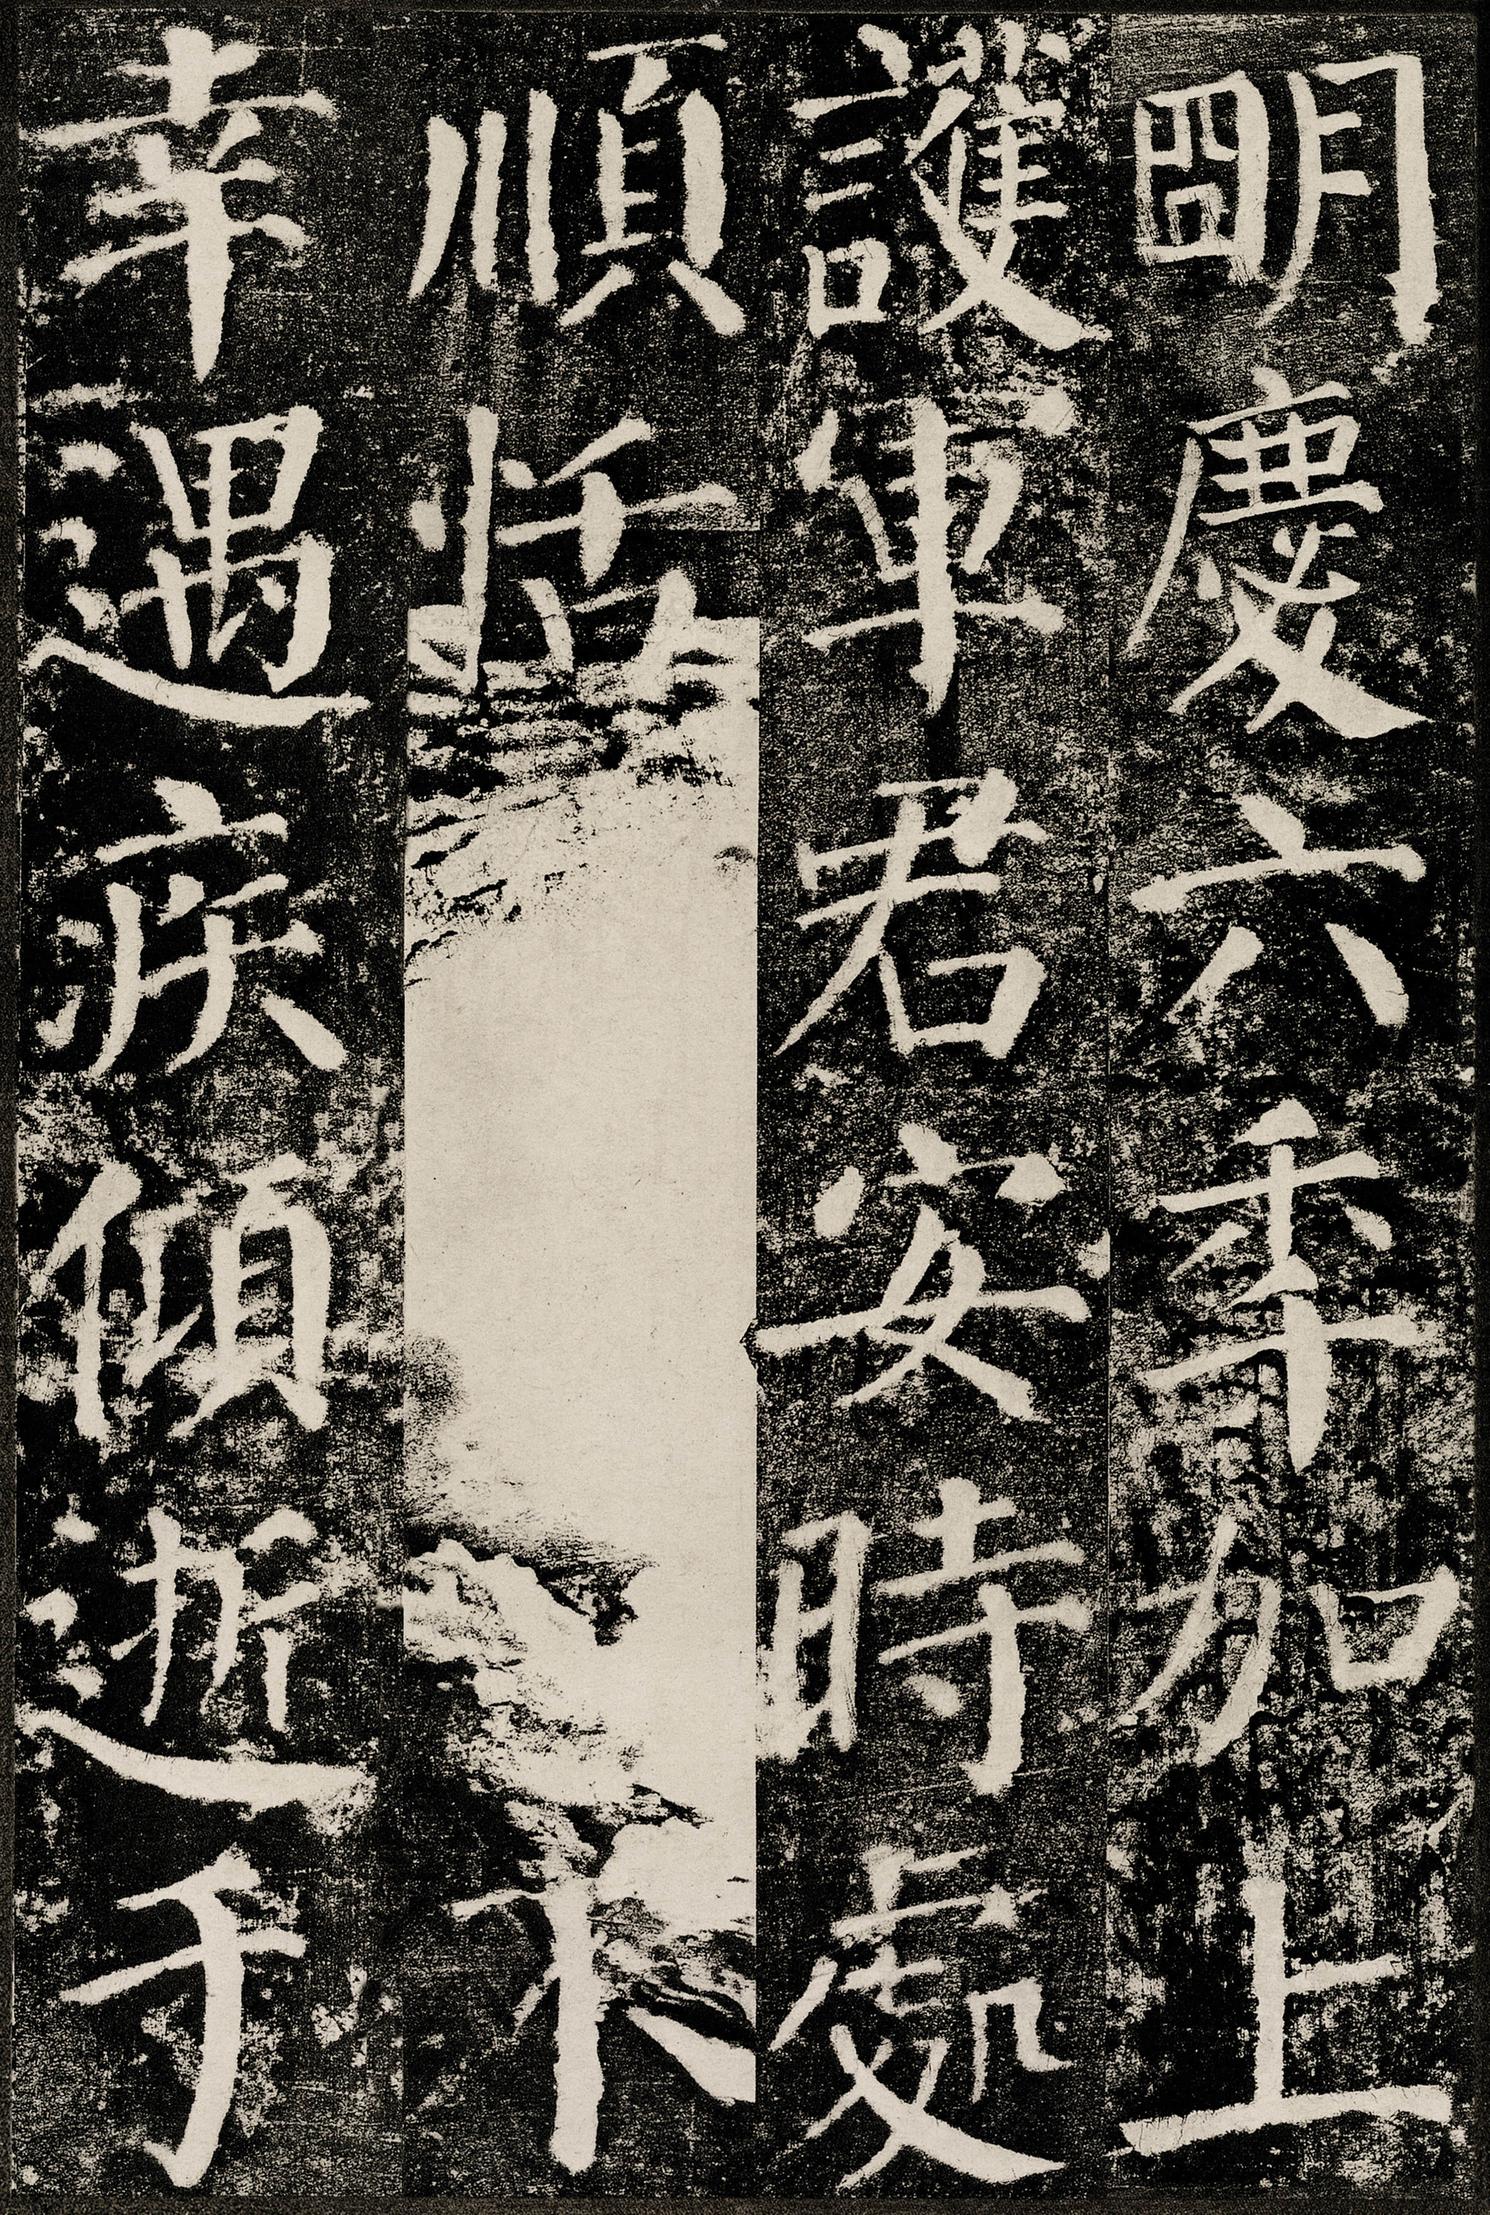 明慶六年加上
護軍君安時處
順恬不
幸遇疾傾逝于